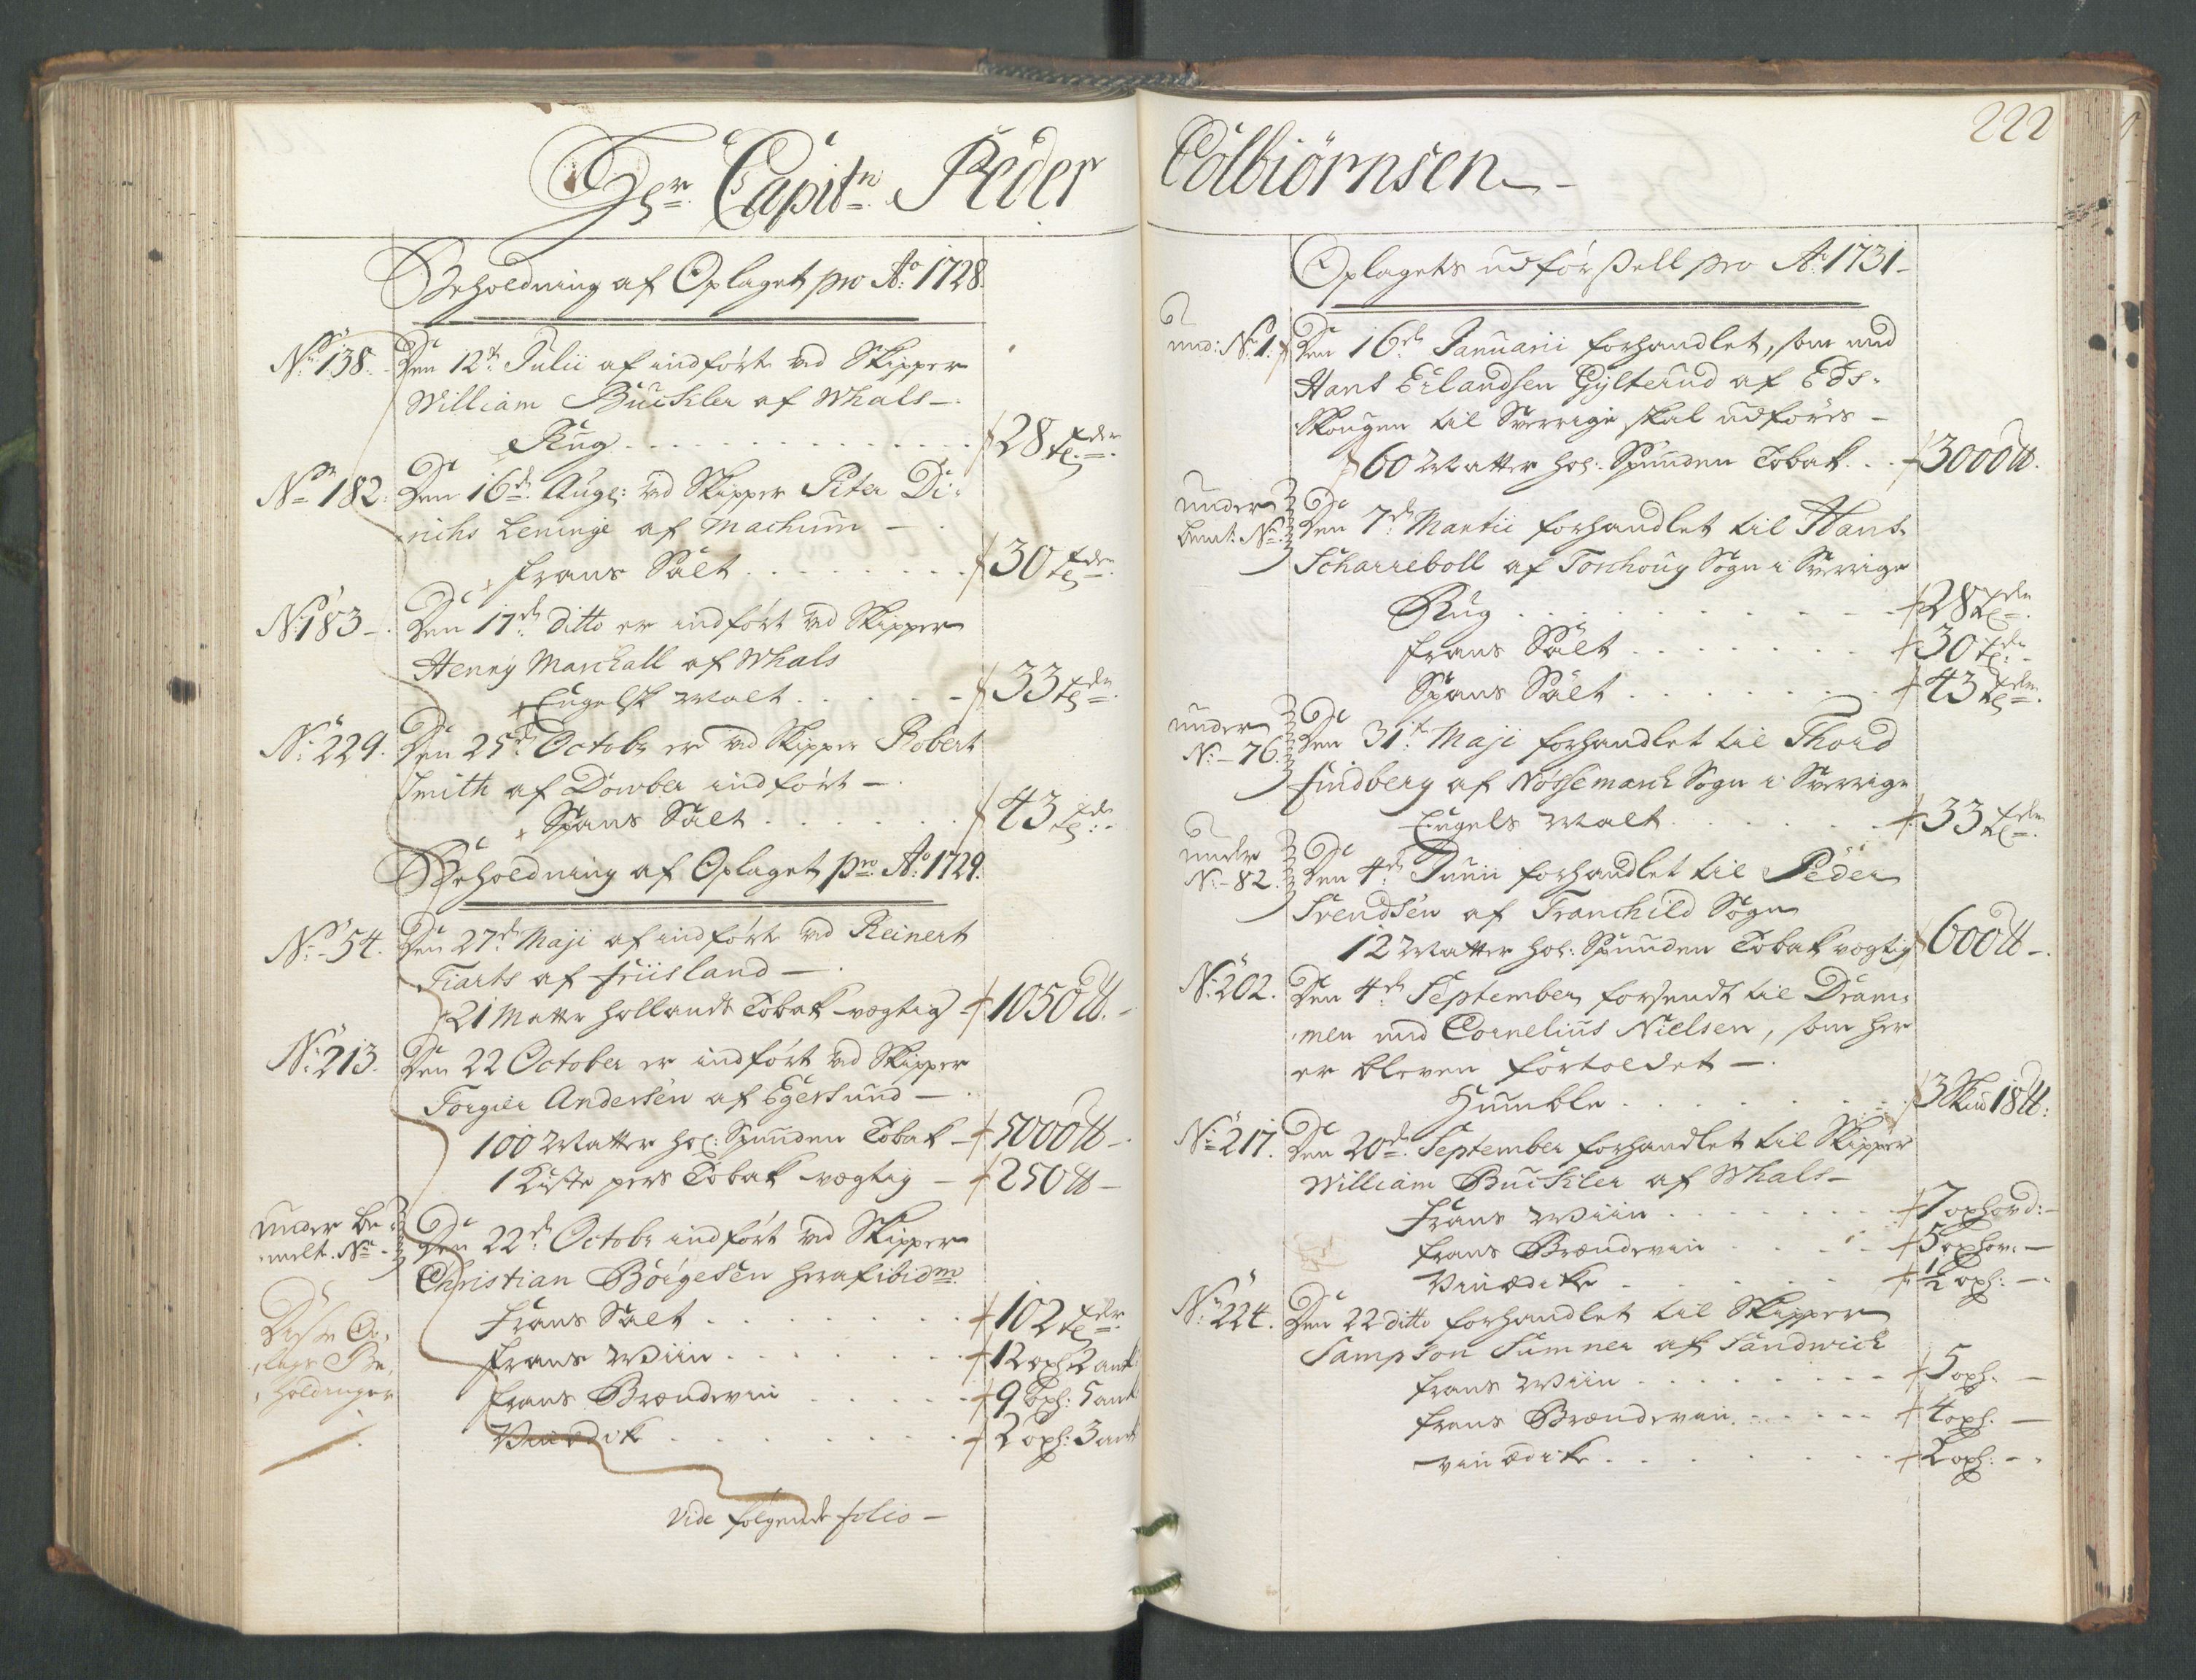 222
Hr. Capitn Peder Colbiørnsen
Beholdning af Oplaget pro Ao: 1728.
No: 138. Den 12te Julii af indført ved Skipper
William Buckler af Whals
Rug 28 tdr
No 182. Den 16de Aug: ved Skipper Piter Di-
richs Leninge af Machum
Frans Salt 30 tdr
No 183. Den 17de ditto er indført ved Skipper
Henry Marchall af Whals
Engelsk Malt 33 tdr
No: 229. Den 25de Octobr er ved Skipper Robert
Smith af Dower indført
Spans Salt 43 tdr
Beholdning af Oplaget pro Ao: 1729.
No 54. Den 27de Maji af indført ved Reinert
Tiarts af Friisland
21 Matter Hollands Tobak vegtig 1050 ℔.
No: 213. Den 22 October er indført ved Skipper
Torgier Andersen af Egersund
100 Matter hol: Spunden Tobak 5000 ℔
1 Kiste pers Tobak vegtig 250 ℔
under be-
melte No Den 22de Octobr indført ved Skipper
Christian Børgesen her af ibidm
Frans Salt 102 tdr
Frans Wiin 12 oxh: 2 ank
Frans Brændevin 9 oxh: 5 ank
Vinædik 2 oxh: 3 ank
Vide følgende folio
Oplagets udførsell pro Ao 1731
und: No 1. Den 16de Januarii forhandlet, som med
Hans Erlandsen Gylterud af Eds-
Skougen til Sverrige skal udføres
60 Matter hol: Spunden Tobak 3000 ℔.
under
bemt. No. Den 7de Martii forhandlet til Hans
Scharieboll af Torshoug Sogn i Sverrige
Rug 28 tdr
Frans Salt 30 tdr
Spans Salt 43 tdr
under
No: 76. Den 31te Maji forhandlet til Thord
Lindberg af Nossemarch Sogn i Sverrige
Engels Malt 33 tdr
under
No: 82. Den 4de Junii forhandlet til Peder
Svendsen af Tranchild Sogn
12 Matter hol: Spunden Tobak vegtig 600 ℔
No: 202. Den 4de September forsendt til Dram-
men med Cornelius Nielsen, som her
er bleven fortoldet
Humble 3 Skud 18 ℔:
No 217. Den 20de September forhandlet til Skipper
William Buckler af Whals
Frans Wiin 7 oxhovd:
Frans Brændevin 5 oxhov:
Vinædike 1/2 oxh:
No: 224. Den 22 ditto forhandlet til Skipper
Sampson Sumner af Sandwich
Frans Wiin 5 oxh.
Frans Brændevin 4 oxh.
vinædike 2 oxh: